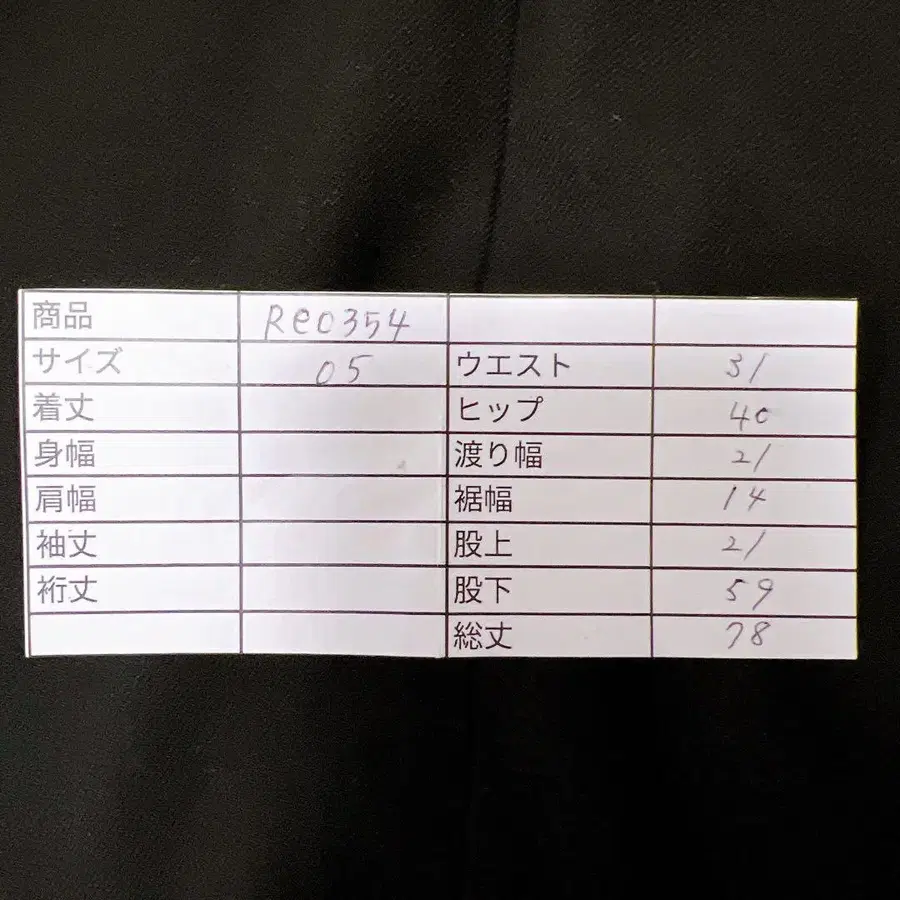 商品 Re0354
サイズ 05 ウエスト 31
着丈 ヒップ 40
身幅 渡り幅 21
肩幅 裾幅 14
袖丈 股上 21
裄丈 股下 59
総丈 78